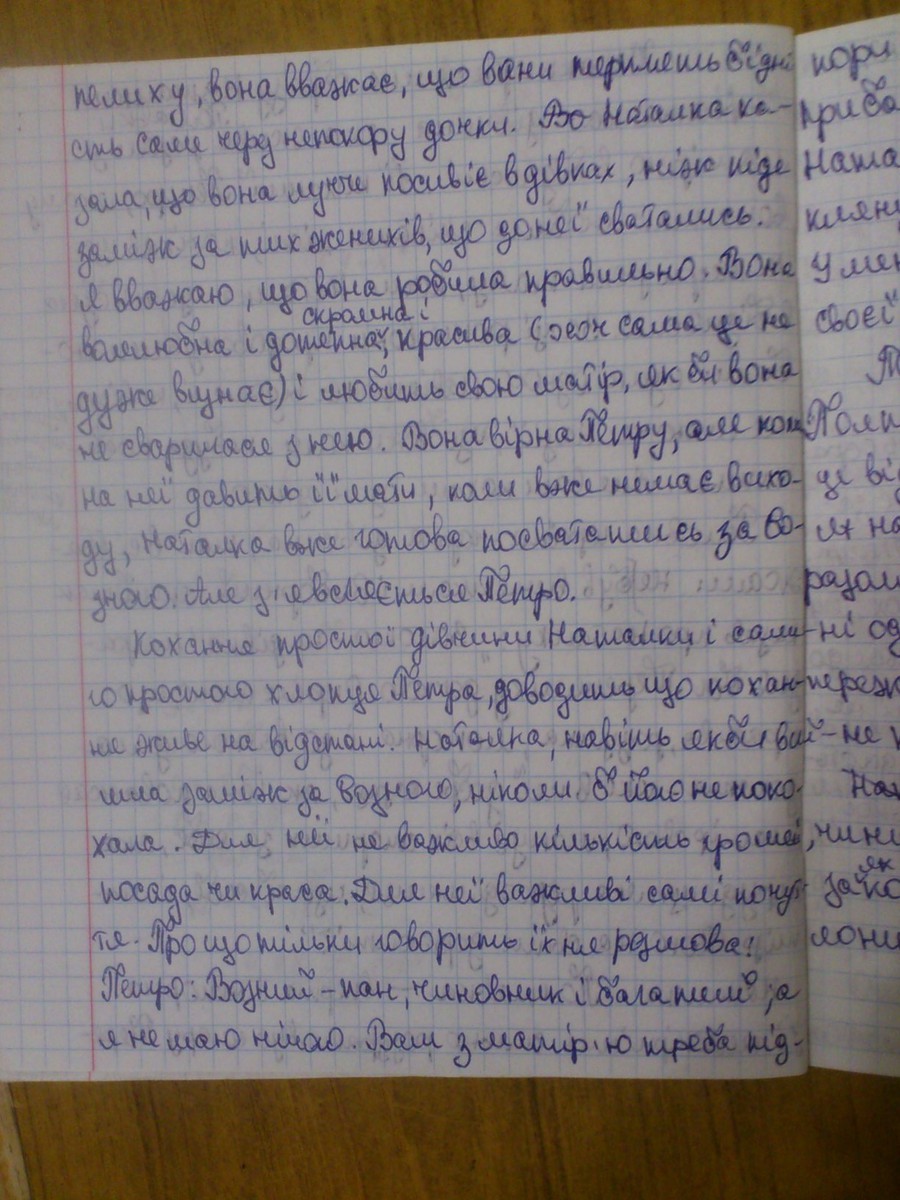 пелиху, вона вважає, що вани терплять бідні
сть саме через непокору дочки. Бо Наталка ка-
зала, що вона лучче посивіє в дівках, ніж піде
заміж за тих женихів, що до неї сватались.
Я вважаю, що вона робила правильно. Вона
скромна і
волелюбна і дотепна, красива (хоч сама це не
дуже визнає) і любить свою матір, як би вона
не сварилася з нею. Вона вірна Петру, але коли
на неї давить її мати, коли вже немає вихо-
ду, Наталка вже готова посвататись за Во-
зного. Але з'являється Петро.
Кохання простої дівчини Наталки і тако-
го простого хлопця Петра, доводить що кохан-
ня живе на відстані. Наталка, навіть якби вий-
шла заміж за Возного, ніколи б його не поко-
хала. Для неї не важливо кількість грошей,
посада чи краса. Для неї важливі самі почут
тя. Про що тільки говорить їхня розмова:
Петро: Возний – пан, чиновник і багатий, а
я не маю нічого. Вам з матір'ю треба під-
пори
приба
Ната
кляну
У мен
своєї
Т
Полт
це від
як на
разом
ні од
переж
не
На
чини
як
за ко